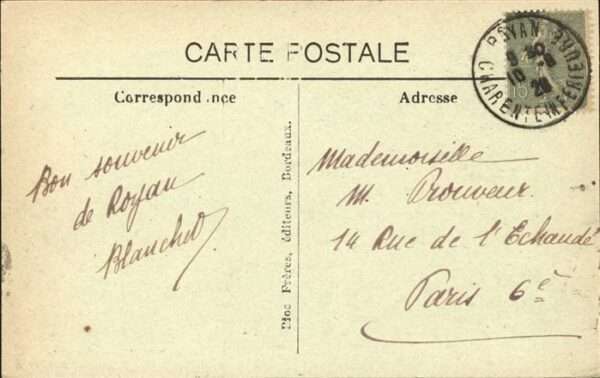 CARTE POSTALE
Correspondance
Adresse
ROYAN
CHARENTE INFÉRIEURE
10 - 8
20
15
Bon souvenir
de Royan
Blanchet
Mademoiselle
M. Prouveur.
14 Rue de l'Echaudé
Paris 6e
Ploc Frères, éditeurs, Bordeaux.